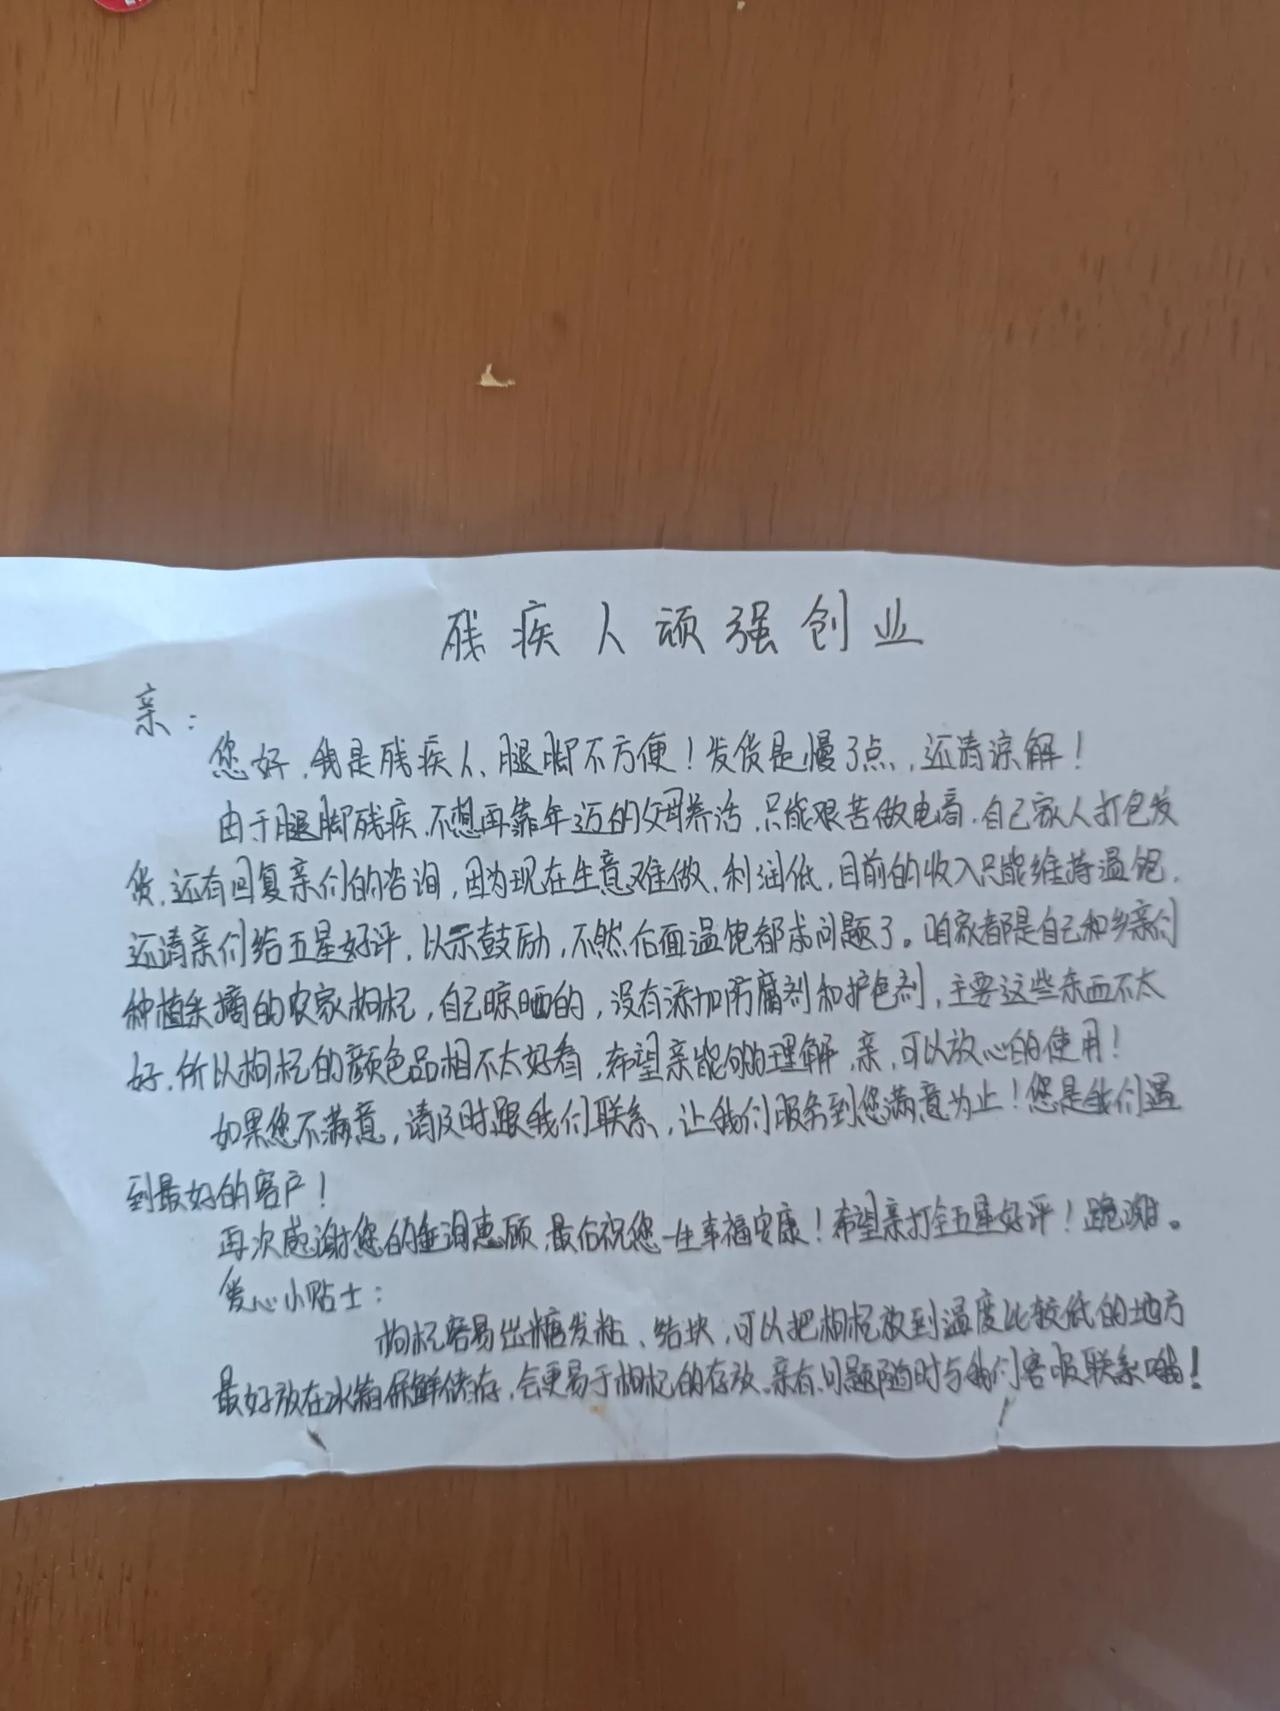 残疾人顽强创业
亲：
您好，我是残疾人、腿脚不方便！发货是慢了点，还请谅解！
由于腿脚残疾，不想再靠年迈的父母养活，只能艰苦做电商，自己家人打包发
货，还有回复亲们的咨询，因为现在生意难做，利润低，目前的收入只能维持温饱，
还请亲们给五星好评，以示鼓励，不然后面温饱都成问题了。咱家都是自己和乡亲们
种植采摘的农家枸杞，自己晾晒的，没有添加防腐剂和护色剂，主要这些东西不太
好，所以枸杞的颜色品相不太好看，希望亲能够的理解，亲，可以放心的使用！
如果您不满意，请及时跟我们联系，让我们服务到您满意为止！您是我们遇
到最好的客户！
再次感谢您的垂询惠顾，最后祝您一生幸福安康！希望亲打全五星好评！跪谢。
爱心小贴士：
枸杞容易出糖发粘、结块，可以把枸杞放到温度比较低的地方
最好放在冰箱保鲜储存，会更易于枸杞的存放。亲有问题随时与我们客服联系哦！